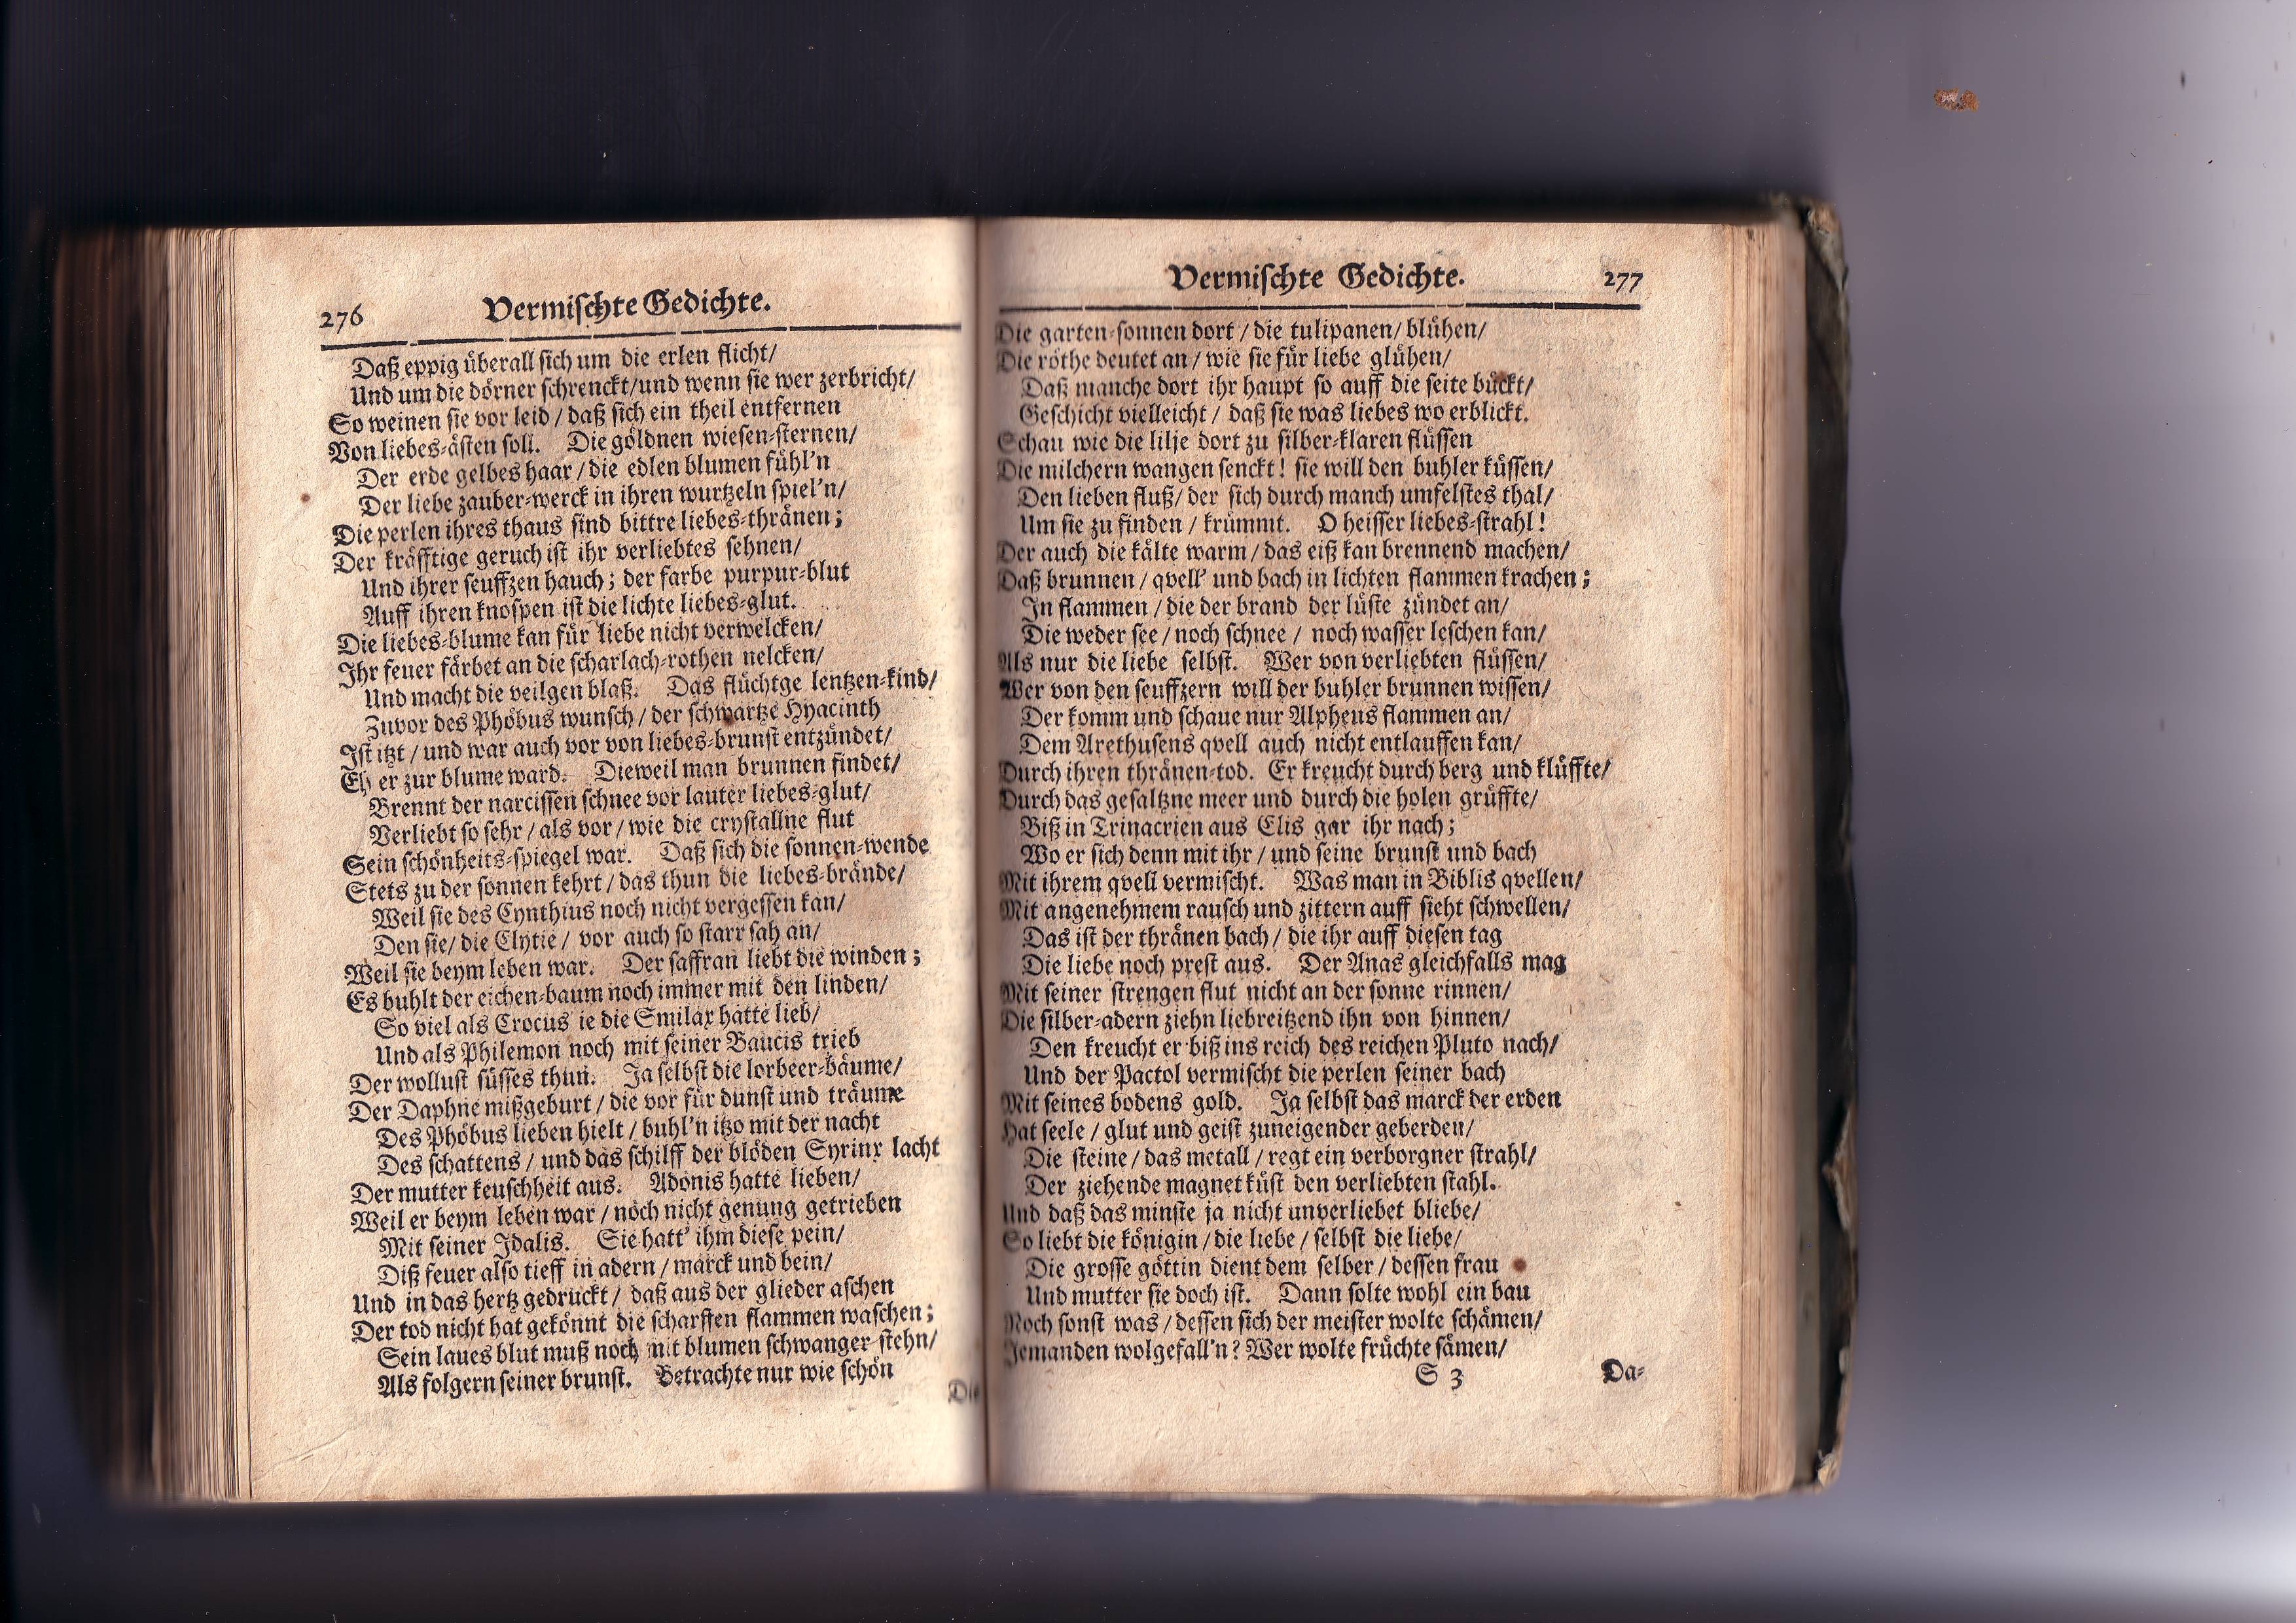 276 Vermischte Gedichte.
Daß eppig überall sich um die erlen flicht/
Und um die dörner schrenckt/und wenn sie wer zerbricht/
So weinen sie vor leid / daß sich ein theil entfernen
Von liebes-ästen soll. Die göldnen wiesen-sternen/
Der erde gelbes haar / die edlen blumen fühl'n
Der liebe zauber-werck in ihren wurtzeln spiel'n/
Die perlen ihres thaus sind bittre liebes-thränen;
Der kräfftige geruch ist ihr verliebtes sehnen/
Und ihrer seuffzen hauch; der farbe purpur-blut
Auff ihren knospen ist die lichte liebes-glut.
Die liebes-blume kan für liebe nicht verwelcken/
Ihr feuer färbet an die scharlach-rothen nelcken/
Und macht die veilgen blaß. Das flüchtge lentzen-kind/
Zuvor des Phöbus wunsch / der schwartze Hyacinth
Ist itzt / und war auch vor von liebes-brunst entzündet/
Eh er zur blume ward. Dieweil man brunnen findet/
Brennt der narcissen schnee vor lauter liebes-glut/
Verliebt so sehr / als vor / wie die crystallne flut
Sein schönheits-spiegel war. Daß sich die sonnen-wende
Stets zu der sonnen kehrt / das thun die liebes-brände/
Weil sie des Cynthius noch nicht vergessen kan/
Den sie/ die Clytie / vor auch so starr sah an/
Weil sie beym leben war. Der saffran liebt die winden;
Es buhlt der eichen-baum noch immer mit den linden/
So viel als Crocus ie die Smilax hatte lieb/
Und als Philemon noch mit seiner Baucis trieb
Der wollust süsses thun. Ja selbst die lorbeer-bäume/
Der Daphne mißgeburt / die vor für dunst und träume
Des Phöbus lieben hielt / buhl'n itzo mit der nacht
Des schattens / und das schilff der blöden Syrinx lacht
Der mutter keuschheit aus. Adonis hatte lieben/
Weil er beym leben war / noch nicht genung getrieben
Mit seiner Idalis. Sie hatt' ihm diese pein/
Diß feuer also tieff in adern / marck und bein/
Und in das hertz gedruckt / daß aus der glieder aschen
Der tod nicht hat gekönnt die scharffen flammen waschen;
Sein laues blut muß noch mit blumen schwanger stehn/
Als folgern seiner brunst. Betrachte nur wie schön
Die
Vermischte Gedichte. 277
Die garten-sonnen dort / die tulipanen/ blühen/
Die röthe deutet an / wie sie für liebe glühen/
Daß manche dort ihr haupt so auff die seite bückt/
Geschicht vielleicht / daß sie was liebes wo erblickt.
Schau wie die lilje dort zu silber-klaren flüssen
Die milchern wangen senckt! sie will den buhler küssen/
Den lieben fluß/ der sich durch manch umfelstes thal/
Um sie zu finden / krümmt. O heisser liebes-strahl!
Der auch die kälte warm / das eiß kan brennend machen/
Daß brunnen / qvell' und bach in lichten flammen krachen;
In flammen / die der brand der lüste zündet an/
Die weder see / noch schnee / noch wasser leschen kan/
Als nur die liebe selbst. Wer von verliebten flüssen/
Wer von den seuffzern will der buhler brunnen wissen/
Der komm und schaue nur Alpheus flammen an/
Dem Arethusens qvell auch nicht entlauffen kan/
Durch ihren thränen-tod. Er kreucht durch berg und klüffte/
Durch das gesaltzne meer und durch die holen grüffte/
Biß in Trinacrien aus Elis gar ihr nach;
Wo er sich denn mit ihr / und seine brunst und bach
Mit ihrem qvell vermischt. Was man in Biblis qvellen/
Mit angenehmem rausch und zittern auff sieht schwellen/
Das ist der thränen bach / die ihr auff diesen tag
Die liebe noch prest aus. Der Anas gleichfalls mag
Mit seiner strengen flut nicht an der sonne rinnen/
Die silber-adern ziehn liebreitzend ihn von hinnen/
Den kreucht er biß ins reich des reichen Pluto nach/
Und der Pactol vermischt die perlen seiner bach
Mit seines bodens gold. Ja selbst das marck der erden
Hat seele / glut und geist zuneigender geberden/
Die steine / das metall / regt ein verborgner strahl/
Der ziehende magnet küst den verliebten stahl.
Und daß das minste ja nicht unverliebet bliebe/
So liebt die königin / die liebe / selbst die liebe/
Die grosse göttin dient dem selber / dessen frau
Und mutter sie doch ist. Dann solte wohl ein bau
Noch sonst was / dessen sich der meister wolte schämen/
Jemanden wolgefall'n? Wer wolte früchte sämen/
S 3 Da-